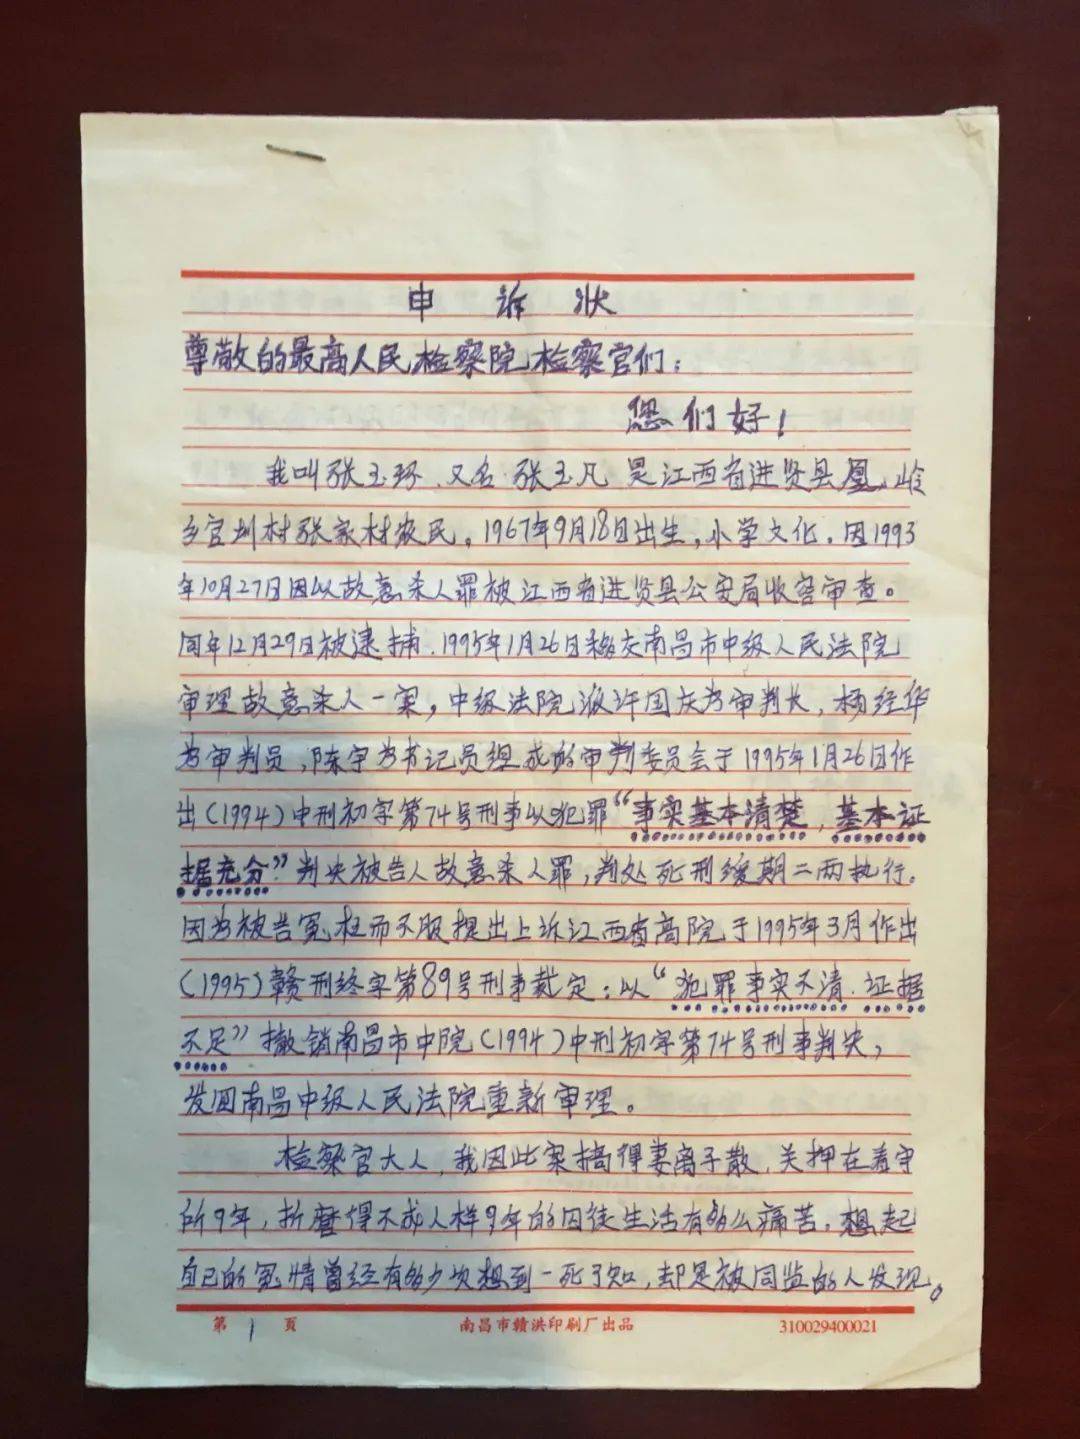 申诉状
尊敬的最高人民检察院检察官们：
您们好！
我叫张玉环，又名·张玉凡 是江西省进贤县凰岭
乡官圳村张家村农民。1967年9月18日出生，小学文化。因1993
年10月27日因以故意杀人罪被江西省进贤县公安局收容审查。
同年12月29日被逮捕，1995年1月26日移交南昌市中级人民法院
审理故意杀人一案，中级法院派许国庆为审判长，杨经华
为审判员，陈宇为书记员组成的审判委员会于1995年1月26日作
出（1994）中刑初字第74号刑事以犯罪“事实基本清楚，基本证
据充分”判决被告人故意杀人罪，判处死刑缓期二两执行。
因为被告冤枉而不服提出上诉江西省高院于1995年3月作出
（1995）赣刑终字第89号刑事裁定：以“犯罪事实不清，证据
不足”撤销南昌市中院（1994）中刑初字第74号刑事判决，
发回南昌中级人民法院重新审理。
检察官大人，我因此案搞得妻离子散，关押在看守
所9年，折磨得不成人样9年的囚徒生活有多么痛苦，想起
自己的冤情曾经有多少次想到一死了知，却是被同监的人发现。
第1页 南昌市赣洪印刷厂出品 310029400021